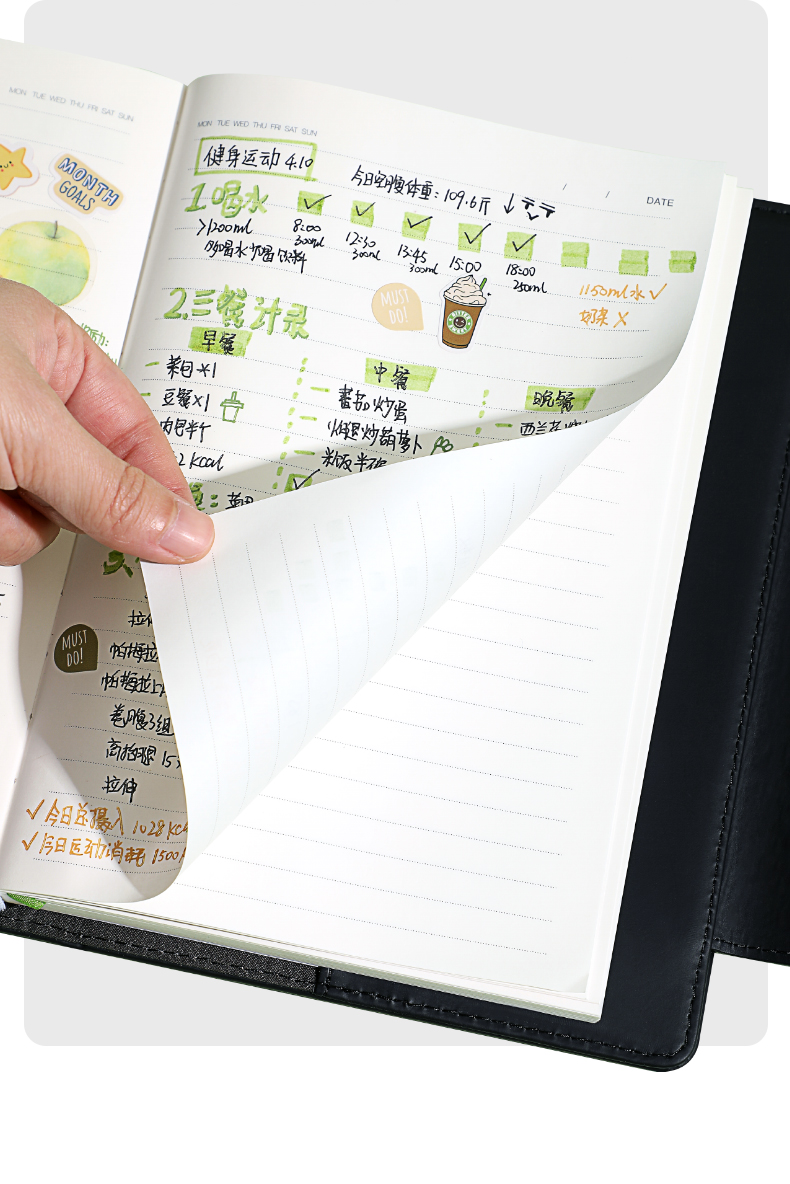 MON TUE WED THU FRI SAT SUN
MONTH
GOALS
MON TUE WED THU FRI SAT SUN
健身运动 4.10
今日空腹体重：109.6斤 ↓
/ / DATE
1.喝水
>1200ml
多喝水少喝饮料
8:00
300ml
12:30
300ml
13:45
300ml
15:00
18:00
250ml
1150ml水 ✓
奶茶 X
MUST
DO!
2.三餐计录
早餐
中餐
晚餐
菜包*1
豆浆×1
番茄炒蛋
炒胡萝卜
米饭半碗
西兰花
kcal
MUST
DO!
帕梅拉
帕梅拉
卷腹3组
高抬腿 15
拉伸
✓今日总摄入 1028 kca
✓今日运动消耗 1500